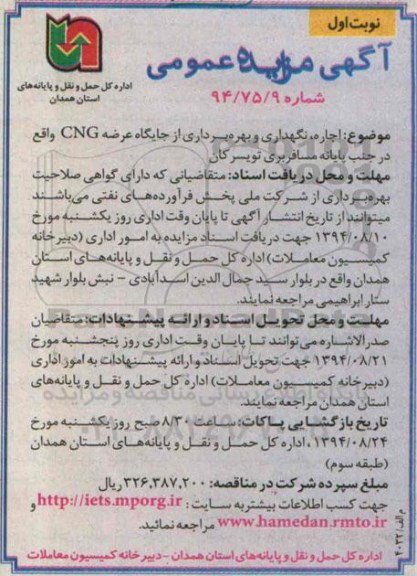 نوبت اول
آگهی مزایده عمومی
شماره ۹۴/۷۵/۹
اداره کل حمل و نقل و پایانه‌های
استان همدان
موضوع: اجاره، نگهداری و بهره‌برداری از جایگاه عرضه CNG واقع
در جنب پایانه مسافربری تویسرکان
مهلت و محل دریافت اسناد: متقاضیانی که دارای گواهی صلاحیت
بهره‌برداری از شرکت ملی پخش فرآورده‌های نفتی می‌باشند
میتوانند از تاریخ انتشار آگهی تا پایان وقت اداری روز یکشنبه مورخ
۱۳۹۴/۰۸/۱۰ جهت دریافت اسناد مزایده به امور اداری (دبیرخانه
کمیسیون معاملات) اداره کل حمل و نقل و پایانه‌های استان
همدان واقع در بلوار سید جمال الدین اسدآبادی - نبش بلوار شهید
ستار ابراهیمی مراجعه نمایند.
مهلت و محل تحویل اسناد و ارائه پیشنهادات: متقاضیان
صدرالاشاره می‌توانند تا پایان وقت اداری روز پنجشنبه مورخ
۱۳۹۴/۰۸/۲۱ جهت تحویل اسناد و ارائه پیشنهادات به امور اداری
(دبیرخانه کمیسیون معاملات) اداره کل حمل و نقل و پایانه‌های
استان همدان مراجعه نمایند.
تاریخ بازگشایی پاکات: ساعت ۸/۳۰ صبح روز یکشنبه مورخ
۱۳۹۴/۰۸/۲۴، اداره کل حمل و نقل و پایانه‌های استان همدان
(طبقه سوم)
مبلغ سپرده شرکت در مناقصه: ۳۲۶,۳۸۷,۲۰۰ ریال
جهت کسب اطلاعات بیشتر به سایت: http://iets.mporg.ir و
www.hamedan.rmto.ir مراجعه نمائید.
اداره کل حمل و نقل و پایانه‌های استان همدان - دبیرخانه کمیسیون معاملات
م الف/ ۴۰۲۲